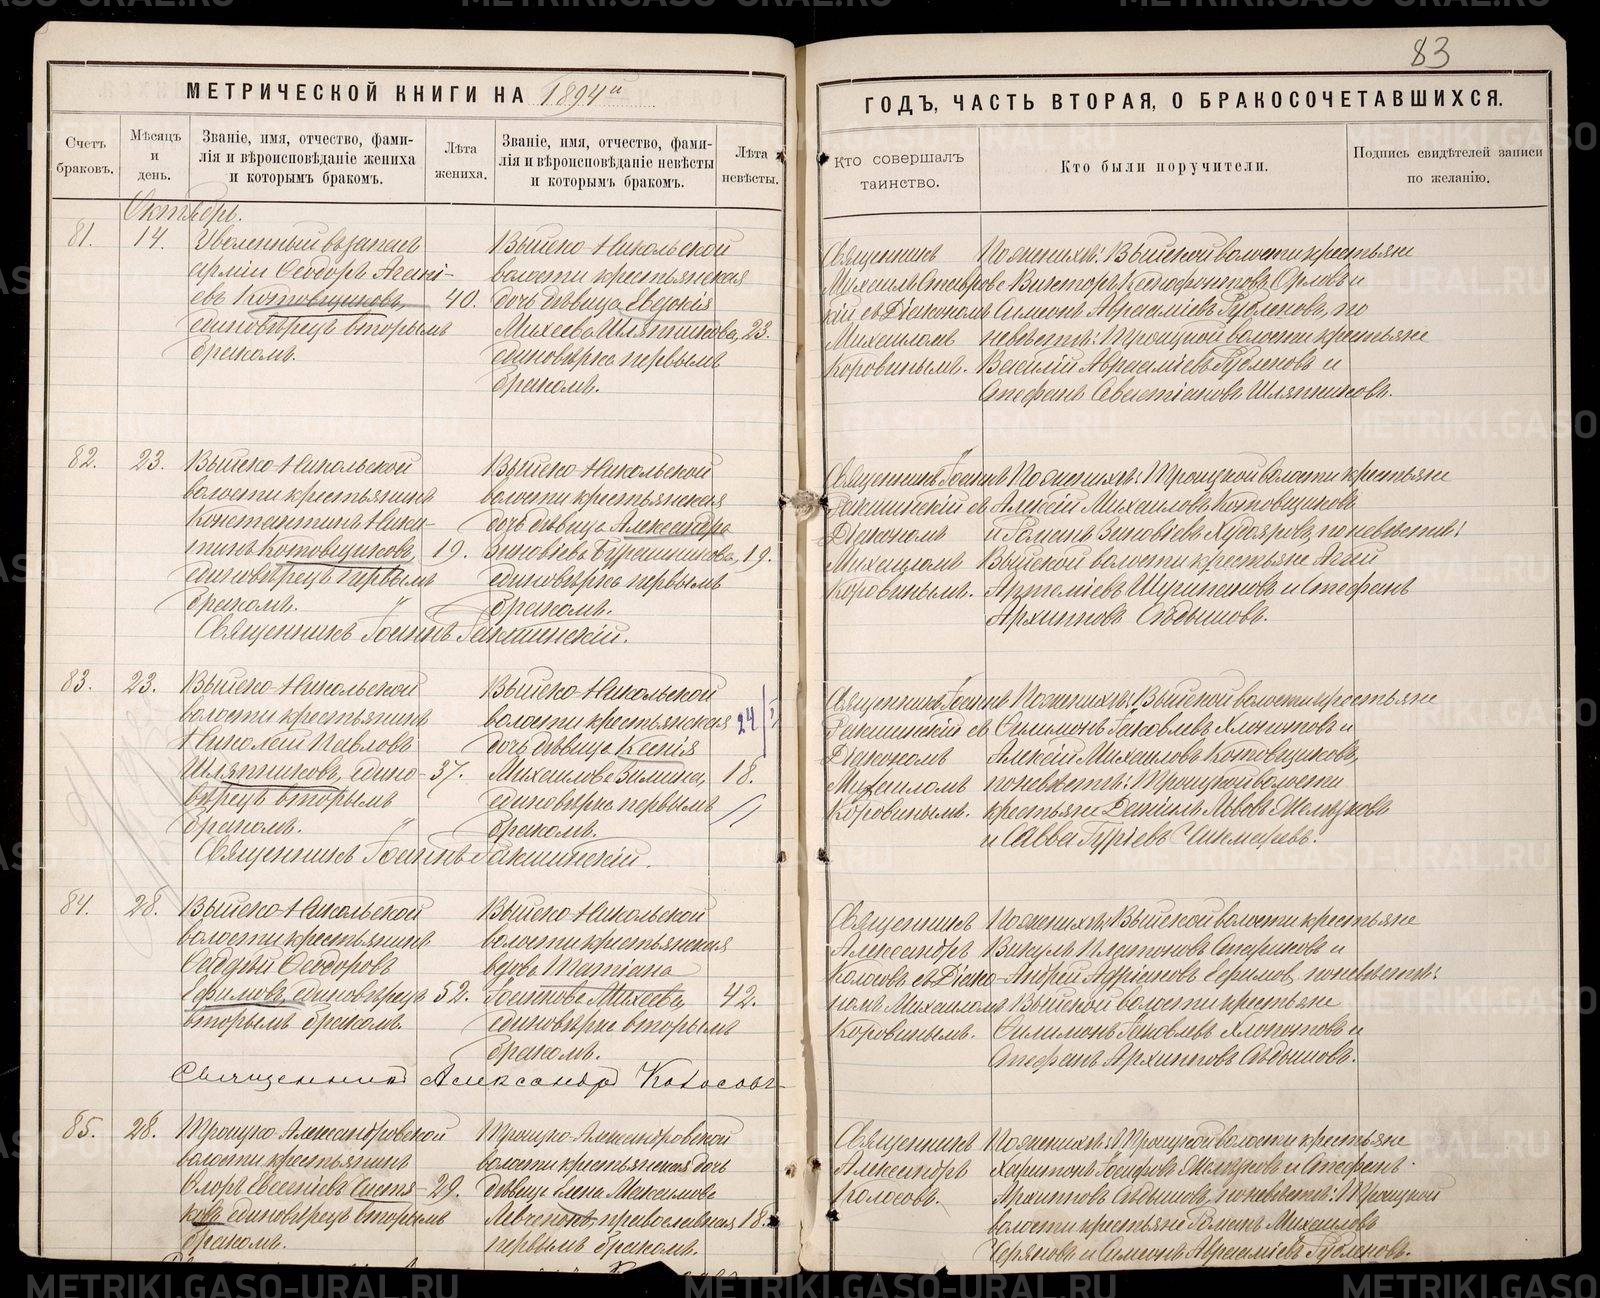 83
МЕТРИЧЕСКОЙ КНИГИ НА 1894й
ГОДЪ, ЧАСТЬ ВТОРАЯ, О БРАКОСОЧЕТАВШИХСЯ.
Счетъ браковъ.
Мѣсяцъ и день.
Званіе, имя, отчество, фами-
лія и вѣроисповѣданіе жениха
и которымъ бракомъ.
Лѣта жениха.
Званіе, имя, отчество, фами-
лія и вѣроисповѣданіе невѣсты
и которымъ бракомъ.
Лѣта невѣсты.
Кто совершалъ
таинство.
Кто были поручители.
Подпись свидѣтелей записи
по желанію.
Октябрь.
81.
14.
Уволенный въ запасъ
арміи Ѳеодоръ Агапі-
евъ Котовщиковъ,
единовѣрецъ вторымъ
бракомъ.
40.
Выйско-Никольской
волости крестьянская
дочь дѣвица Евдокія
Михеева Шляпникова,
единовѣрка первымъ
бракомъ.
23.
Священникъ
Михаилъ
съ Діакономъ
Михаиломъ
Коровинымъ.
По женихѣ: Выйской волости крестьяне
Викторъ Ксенофонтовъ Орловъ и
Симеонъ Авраамiевъ, по
невѣстѣ: Троицкой волости крестьяне
Василій Авраамiевъ и
Стефанъ Севастіановъ Шляпниковъ.
82.
23.
Выйско-Никольской
волости крестьянинъ
Константинъ Ники-
тинъ Котовщиковъ,
единовѣрецъ первымъ
бракомъ.
19.
Выйско-Никольской
волости крестьянская
дочь дѣвица Александра
Зиновіева
единовѣрка первымъ
бракомъ.
19.
Священникъ Іоаннъ
съ
Діакономъ
Михаиломъ
Коровинымъ.
По женихѣ: Троицкой волости крестьяне
Алексій Михаиловъ Котовщиковъ
и Романъ Зиновіевъ Худояровъ, по невѣстѣ:
Выйской волости крестьяне
Артеміевъ и Стефанъ
Архиповъ Сѣдышовъ.
Священникъ Іоаннъ
83.
23.
Выйско-Никольской
волости крестьянинъ
Николай Павловъ
Шляпниковъ, едино-
вѣрецъ вторымъ
бракомъ.
37.
Выйско-Никольской
волости крестьянская
дочь дѣвица Ксенія
Михаилова Зимина,
единовѣрка первымъ
бракомъ.
24/
18.
Священникъ Іоаннъ
съ
Діакономъ
Михаиломъ
Коровинымъ.
По женихѣ: Выйской волости крестьяне
Филимонъ Іаковлевъ Хлопотовъ и
Алексій Михаиловъ Котовщиковъ,
по невѣстѣ: Троицкой волости
крестьяне Даніилъ Львовъ Желѣзковъ
и Савва Гурьевъ.
Священникъ Іоаннъ
84.
28.
Выйско-Никольской
волости крестьянинъ
Ѳаддѣй Ѳеодоровъ
Ефимовъ, единовѣрецъ
вторымъ бракомъ.
52.
Выйско-Никольской
волости крестьянская
вдова Татіана
Іоаннова Михеева,
единовѣрка вторымъ
бракомъ.
42.
Священникъ
Александръ
Колосовъ съ Діако-
номъ Михаиломъ
Коровинымъ.
По женихѣ: Выйской волости крестьяне
Викулъ Платоновъ Стариковъ и
Андрей Адріановъ Ефимов, по невѣстѣ:
Выйской волости крестьяне
Филимонъ Іаковлевъ Хлопотовъ и
Стефанъ Архиповъ Сѣдышовъ.
Священникъ Александръ Колосовъ
85.
28.
Троицко-Александровской
волости крестьянинъ
Флоръ Евгеніевъ
единовѣрецъ вторымъ
бракомъ.
29.
Троицко-Александровской
волости крестьянская дочь
дѣвица Елена Максимова
православная
первымъ бракомъ.
18.
Священникъ
Александръ
Колосовъ.
По женихѣ: Троицкой волости крестьяне
Харитонъ Іосифовъ Желѣзковъ и Стефанъ
Архиповъ Сѣдышовъ, по невѣстѣ: Троицкой
волости крестьяне Романъ Михаиловъ
и Симеонъ Авраамiевъ
METRIKI.GASO-URAL.RU